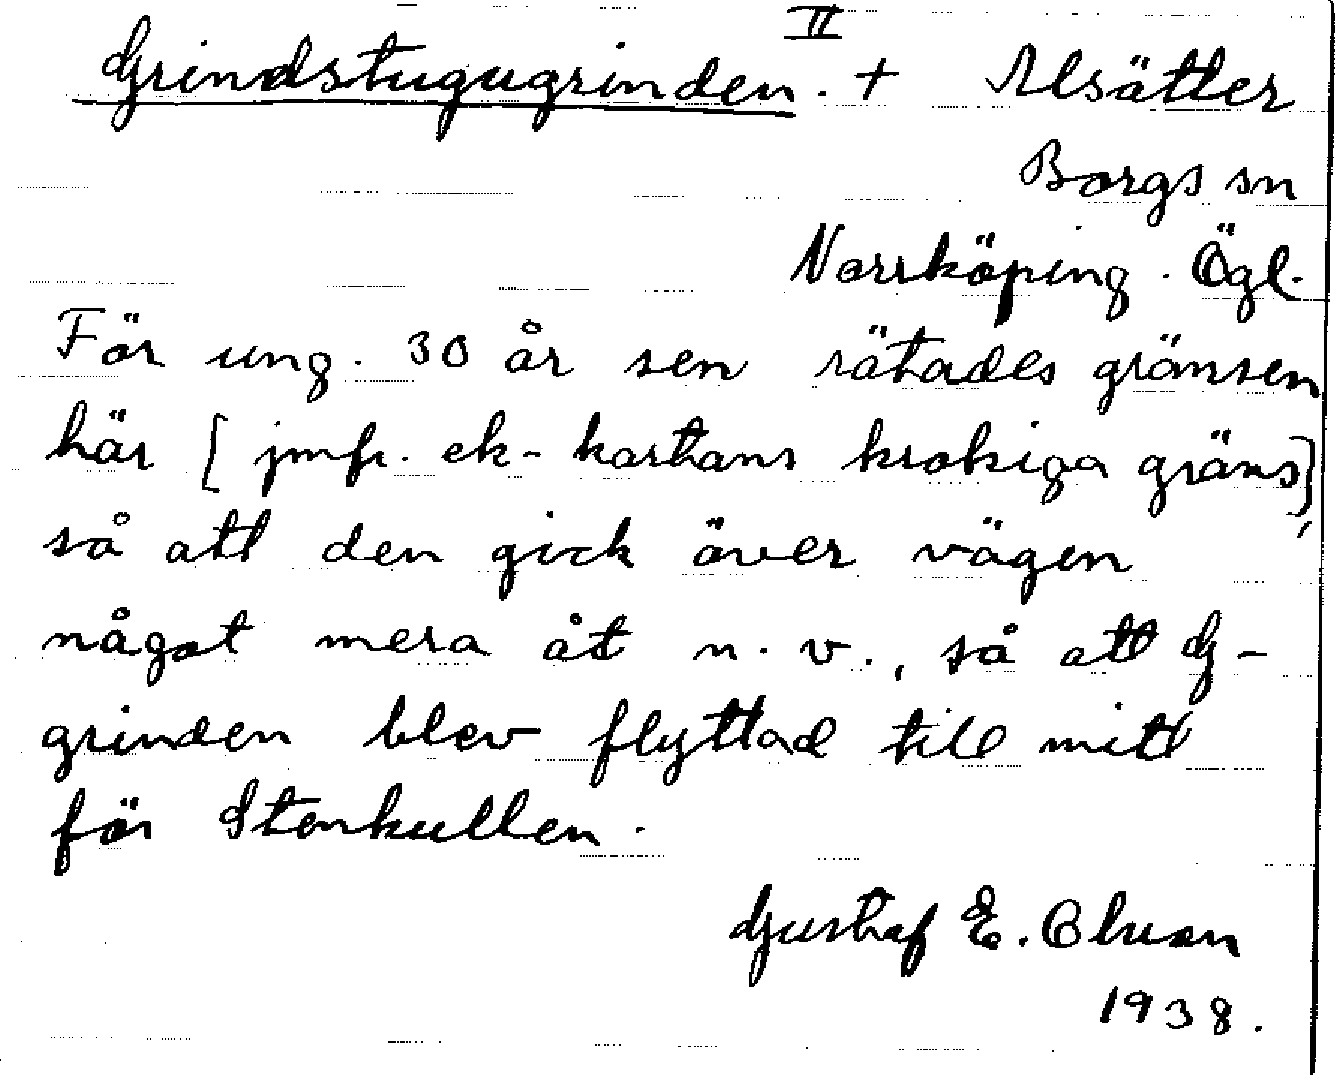 II
Grindstugugrinden. + Alsätter
Borgs sn
Norrköping. Ögl.
För ung. 30 år sen rätades gränsen
här [jmfr. ek-kartans krokiga gräns],
så att den gick över vägen
något mera åt n.v., så att G-
grinden blev flyttad till mitt
för Stenkullen.
Gustaf E. Olsson
1938.